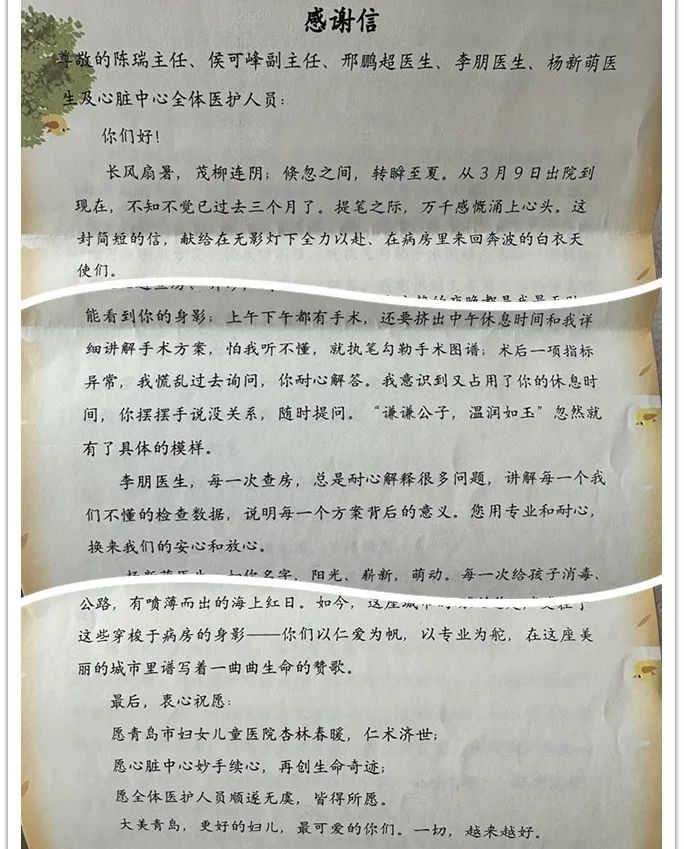 感谢信
尊敬的陈瑞主任、侯可峰副主任、邢鹏超医生、李朋医生、杨新萌医
生及心脏中心全体医护人员：
你们好！
长风扇暑，茂柳连阴；倏忽之间，转瞬至夏。从3月9日出院到
现在，不知不觉已过去三个月了。提笔之际，万千感慨涌上心头。这
封简短的信，献给在无影灯下全力以赴、在病房里来回奔波的白衣天
使们。
能看到你的身影；上午下午都有手术，还要挤出中午休息时间和我详
细讲解手术方案，怕我听不懂，就执笔勾勒手术图谱；术后一项指标
异常，我慌乱过去询问，你耐心解答。我意识到又占用了你的休息时
间，你摆摆手说没关系，随时提问。“谦谦公子，温润如玉”忽然就
有了具体的模样。
李朋医生，每一次查房，总是耐心解释很多问题，讲解每一个我
们不懂的检查数据，说明每一个方案背后的意义。您用专业和耐心，
换来我们的安心和放心。
杨新萌医生，如你名字，阳光、崭新，萌动。每一次给孩子消毒、
公路，有喷薄而出的海上红日。如今，这座城市
这些穿梭于病房的身影——你们以仁爱为帆，以专业为舵，在这座美
丽的城市里谱写着一曲曲生命的赞歌。
最后，衷心祝愿：
愿青岛市妇女儿童医院杏林春暖，仁术济世；
愿心脏中心妙手续心，再创生命奇迹；
愿全体医护人员顺遂无虞，皆得所愿。
大美青岛，更好的妇儿，最可爱的你们。一切，越来越好。